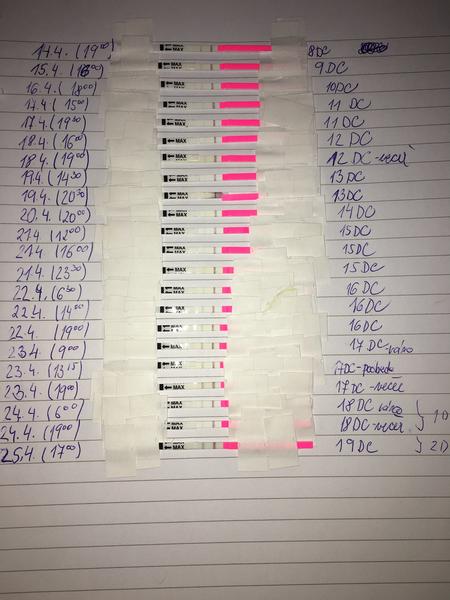 14.4. (19⁰⁰) MAX 8DC
15.4. (18⁰⁰) MAX 9DC
16.4. (18⁰⁰) MAX 10DC
17.4. (15⁰⁰) MAX 11DC
17.4. (19³⁰) MAX 11DC
18.4. (16⁰⁰) MAX 12DC
18.4. (19⁰⁰) MAX 12DC-večer
19.4. (14³⁰) MAX 13DC
19.4. (20³⁰) MAX 13DC
20.4. (20⁰⁰) MAX 14DC
21.4. (12⁰⁰) MAX 15DC
21.4. (16⁰⁰) MAX 15DC
21.4. (23³⁰) MAX 15DC
22.4. (6³⁰) MAX 16DC
22.4. (14⁰⁰) MAX 16DC
22.4. (19⁰⁰) MAX 16DC
23.4. (9⁰⁰) MAX 17DC-ráno
23.4. (13¹⁵) MAX 17DC-poobede
23.4. (19⁰⁰) MAX 17DC-večer
24.4. (6⁰⁰) MAX 18DC ráno
24.4. (19⁰⁰) MAX 18DC-večer } 1D
25.4. (17⁰⁰) MAX 19DC } 2D